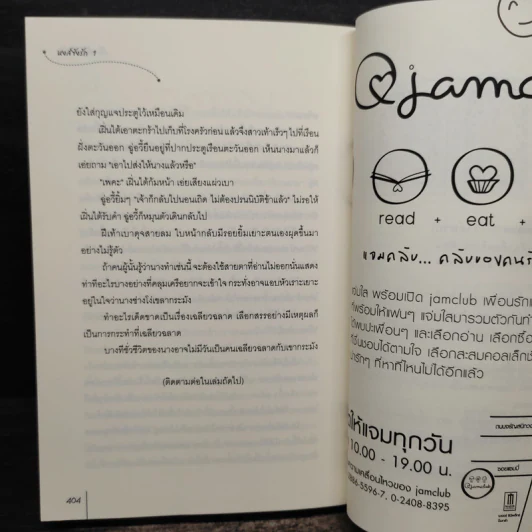 ยังใส่กุญแจประตูไว้เหมือนเดิม
เฝิ่นไต้เอาตะกร้าไปเก็บที่โรงครัวก่อน แล้วจึงสาวเท้าเร็วๆ ไปที่เรือน
ฝั่งตะวันออก อู่อวี๋ยืนอยู่ที่ปากประตูเรือนตะวันออก เห็นนางมาแล้วก็
เอ่ยถาม "เอาไปส่งให้นางแล้วหรือ"
"เพคะ" เฝิ่นไต้ก้มหน้า เอ่ยเสียงแผ่วเบา
อู่อวี๋ยิ้มๆ "เจ้าก็กลับไปนอนเถิด ไม่ต้องปรนนิบัติข้าแล้ว" ไม่รอให้
เฝิ่นไต้รับคำ อู่อวี๋ก็หมุนตัวเดินกลับไป
ฝีเท้าเบาดุจสายลม ใบหน้ากลับมีรอยยิ้มเยาะตนเองผุดขึ้นมา
อย่างไม่รู้ตัว
ถ้าคนผู้นั้นรู้ว่านางทำเช่นนี้ จะต้องใช้สายตาที่อ่านไม่ออกนั่นแสดง
ท่าทีอะไรบางอย่างที่คลุมเครือยากจะเข้าใจ กระทั่งอาจแอบหัวเราะเยาะ
อยู่ในใจว่านางช่างโง่เขลากระมัง
ทำอะไรเด็ดขาดเป็นเรื่องเฉลียวฉลาด เลือกสรรอย่างมีเหตุผลก็
เป็นการกระทำที่เฉลียวฉลาด
บางทีชั่วชีวิตของนางอาจไม่มีวันเป็นคนเฉลียวฉลาดกับเขากระมัง
(ติดตามต่อในเล่มถัดไป)
404
jamcl
read + eat +
แจมคลับ... คลับของคนรั
แจ่มใส พร้อมเปิด jamclub เพื่อนรักแ
ที่พร้อมให้แฟนๆ แจ่มใสมารวมตัวกันทำ
ได้พบปะเพื่อนๆ และเลือกอ่าน เลือกซื้อ
ที่ชื่นชอบได้ตามใจ เลือกสะสมคอลเล็กชั
น่ารักๆ ที่หาที่ไหนไม่ได้อีกแล้ว
ให้แจมทุกวัน
10.00 - 19.00 น.
ความเคลื่อนไหวของ jamclub
886-5596-7, 0-2408-8395